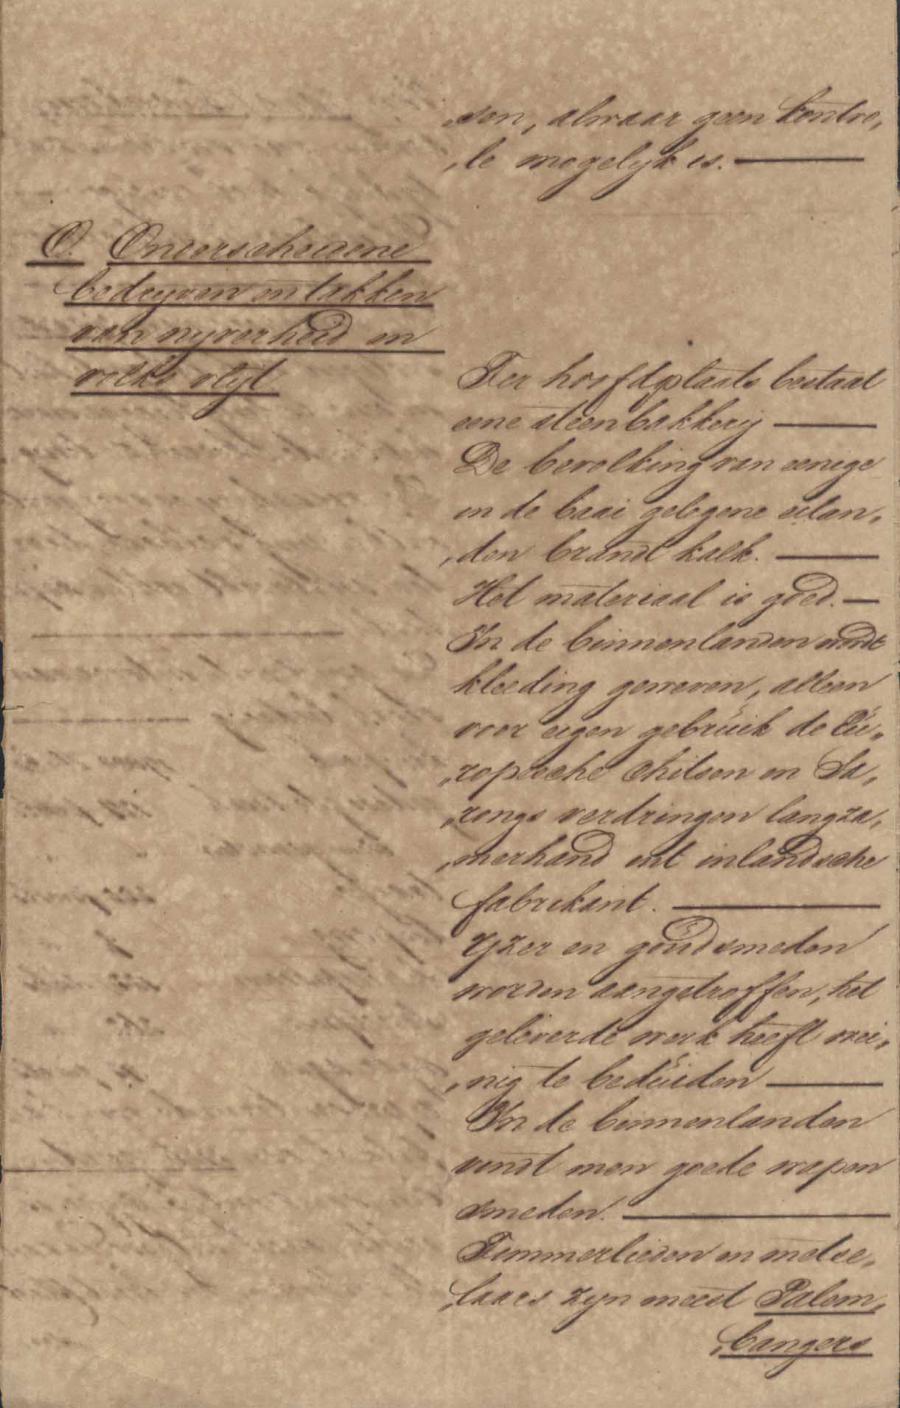 sen, alwaar geen kontro„
„le mogelyk is.
O. Onderscheidene
bedryven en takken
van nyverheid en
volks vlyt
Ter hoofdplaats bestaat
eene steenbakkery
De bevolking van eenige
in de baai gelegene eilan„
„den brandt kalk.
Het materiaal is goed.
In de binnenlanden wordt
kleeding geweven, alleen
voor eigen gebruik de Eu„
„ropesche chitsen en Sa„
„rongs verdringen langza„
„merhand int inlandsche
fabrikaat.
Yzer en goudsmeden
worden aangetroffen, het
geleverde werk heeft wei„
„nig te beduiden
In de binnenlanden
vindt men goede wapen
smeden.
Timmerlieden en metse„
„laars zyn meest Palem„
„bangers